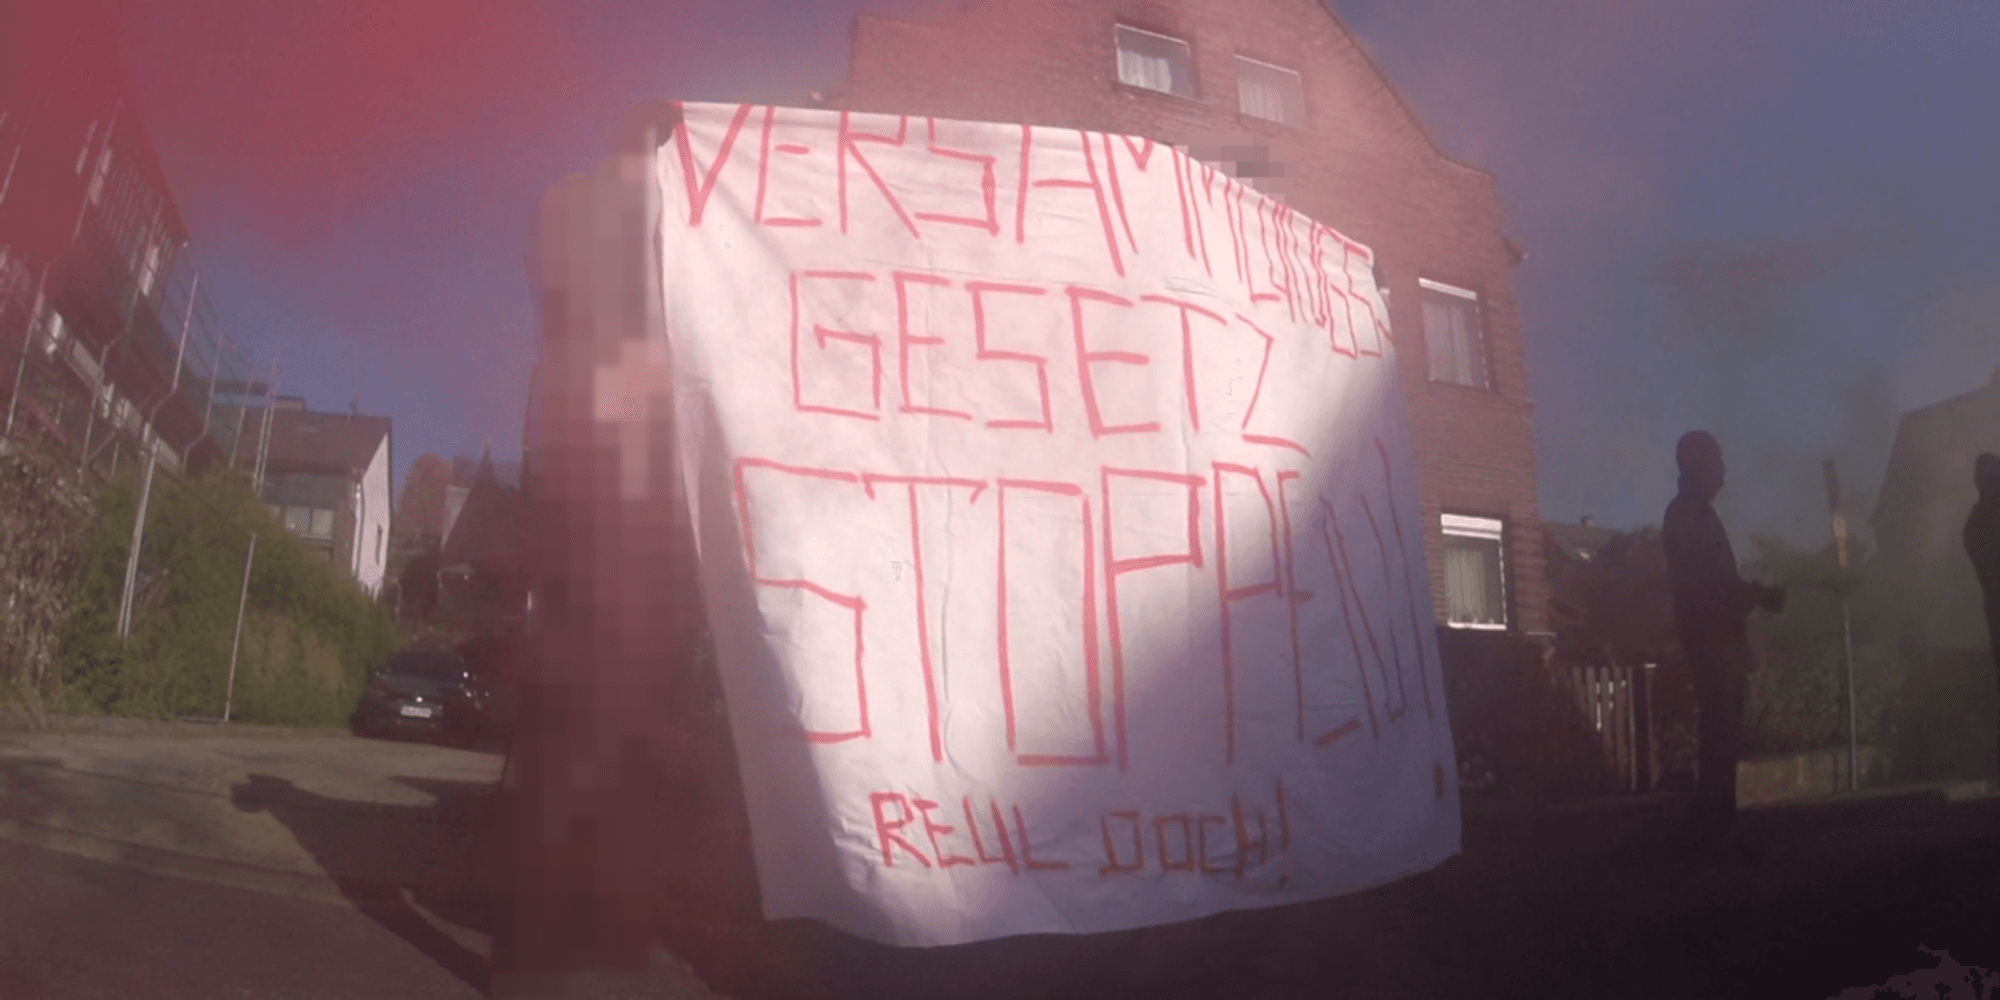 VERSAMMLUNGS
GESETZ
STOPPEN!
REUL DOCH!